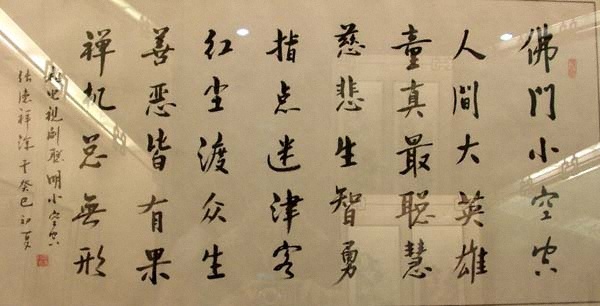 佛門小空空
人間大英雄
童真最聪慧
慈悲生智勇
指点迷津客
红尘渡众生
善恶皆有果
禅机总無形
电视剧聪明小空空
张德祥涂于癸巳初夏